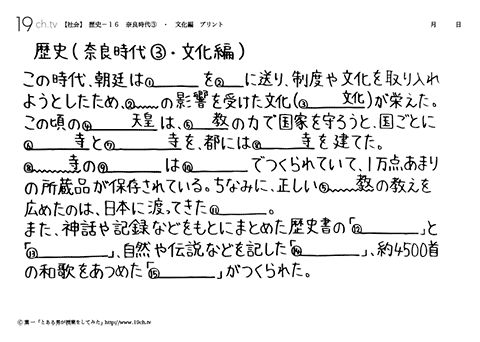 19ch.tv 【社会】 歴史－１６ 奈良時代③ ・ 文化編 プリント 月 日
歴史（奈良時代③・文化編）
この時代、朝廷は①を②に送り、制度や文化を取り入れ
ようとしたため、②の影響を受けた文化（③文化）が栄えた。
この頃の④天皇は、⑤教の力で国家を守ろうと、国ごとに
⑥寺と⑦寺を、都には⑧寺を建てた。
⑧寺の⑨は⑩でつくられていて、1万点あまり
の所蔵品が保存されている。ちなみに、正しい⑤教の教えを
広めたのは、日本に渡ってきた⑪。
また、神話や記録などをもとにまとめた歴史書の「⑫」と
「⑬」、自然や伝説などを記した「⑭」、約4500首
の和歌をあつめた「⑮」がつくられた。
Ⓒ葉一「とある男が授業をしてみた」http://www.19ch.tv